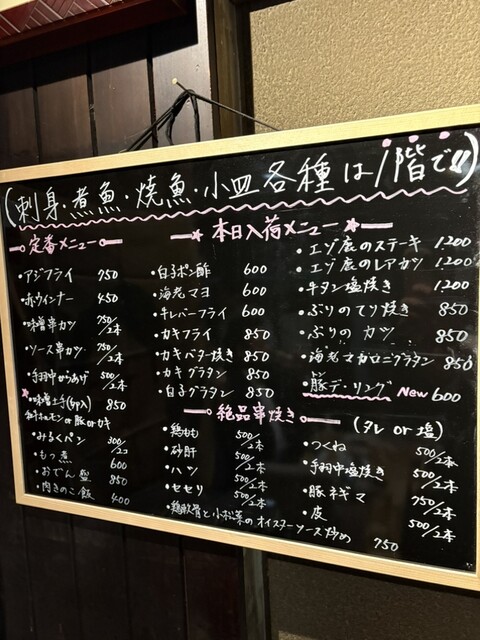 (刺身・煮魚・焼魚・小皿各種は1階で!!)
定番メニュー
・アジフライ 750
・赤ウインナー 450
・味噌串カツ 750/2本
・ソース串カツ 750/2本
・手羽中からあげ 500/2本
・味噌土手(玉入) 850
・みるくパン 300/2コ
・もつ煮 600
・おでん盛 850
・肉きのこ飯 400
★本日入荷メニュー★
・白子ポン酢 600
・海老マヨ 600
・牛レバーフライ 600
・カキフライ 850
・カキバター焼き 850
・カキグラタン 850
・白子グラタン 850
・エゾ鹿のステーキ 1.200
・エゾ鹿のレアカツ 1.200
・牛タン塩焼き 1.200
・ぶりのてり焼き 850
・ぶりのカツ 850
・海老マカロニグラタン 850
・豚デ・リング New 600
絶品串焼き (タレ or 塩)
・鶏もも 500/2本
・砂肝 500/2本
・ハツ 500/2本
・セセリ 500/2本
・つくね 500/2本
・手羽中塩焼き 500/2本
・豚ネギマ 750/2本
・皮 500/2本
・鶏軟骨と小松菜のオイスターソース炒め 750